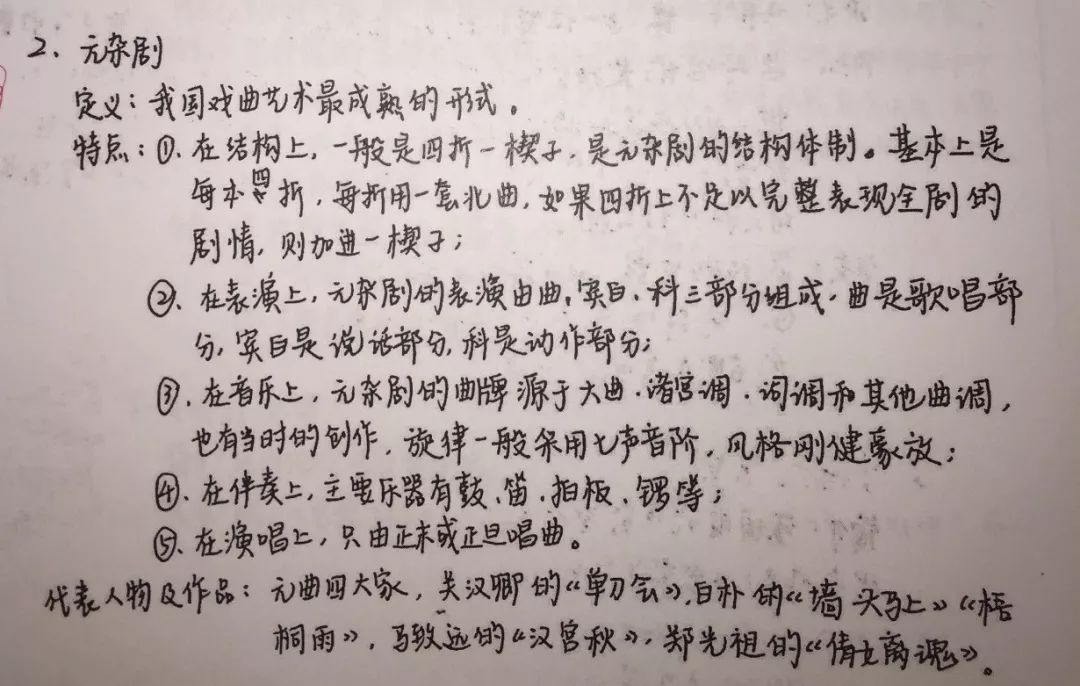 2、元杂剧
定义：我国戏曲艺术最成熟的形式。
特点：①、在结构上，一般是四折一楔子，是元杂剧的结构体制。基本上是
每本四折，每折用一套北曲，如果四折上不足以完整表现全剧的
剧情，则加进一楔子；
②、在表演上，元杂剧的表演由曲、宾白、科三部分组成，曲是歌唱部
分，宾白是说话部分，科是动作部分；
③、在音乐上，元杂剧的曲牌源于大曲、诸宫调、词调和其他曲调，
也有当时的创作，旋律一般采用七声音阶，风格刚健豪放；
④、在伴奏上，主要乐器有鼓、笛、拍板、锣等；
⑤、在演唱上，只由正末或正旦唱曲。
代表人物及作品：元曲四大家，关汉卿的《单刀会》，白朴的《墙头马上》《梧
桐雨》，马致远的《汉宫秋》，郑光祖的《倩女离魂》。